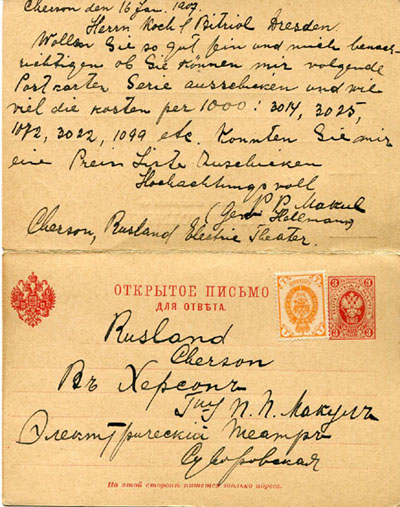 Cherson den 16 Jan. 1909.
Herrn Koch & Bitriol Dresden
Wollen Sie so gut sein und mich benach-
richtigen ob Sie können mir volgende
Postkarten Serie ausschicken und wie
viel die kosten per 1000: 3014, 3025,
1072, 3022, 1099 etc. Konnten Sie mir
eine Preis Liste zuschicken
Hochachtungsvoll
P. P. Makul
Hollmann)
Cherson, Rusland Electric Theater.
ОТКРЫТОЕ ПИСЬМО
ДЛЯ ОТВѢТА.
3 3
Rusland
Cherson
Въ Херсонъ
Гну П. П. Макулъ
Электрическій Театръ
Суворовская
На этой сторонѣ пишется только адресъ.